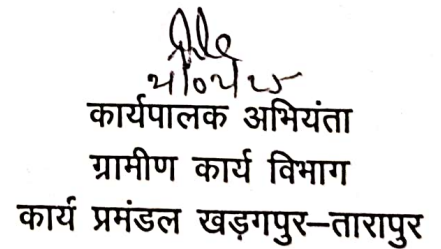 कार्यपालक अभियंता
ग्रामीण कार्य विभाग
कार्य प्रमंडल खड़गपुर–तारापुर